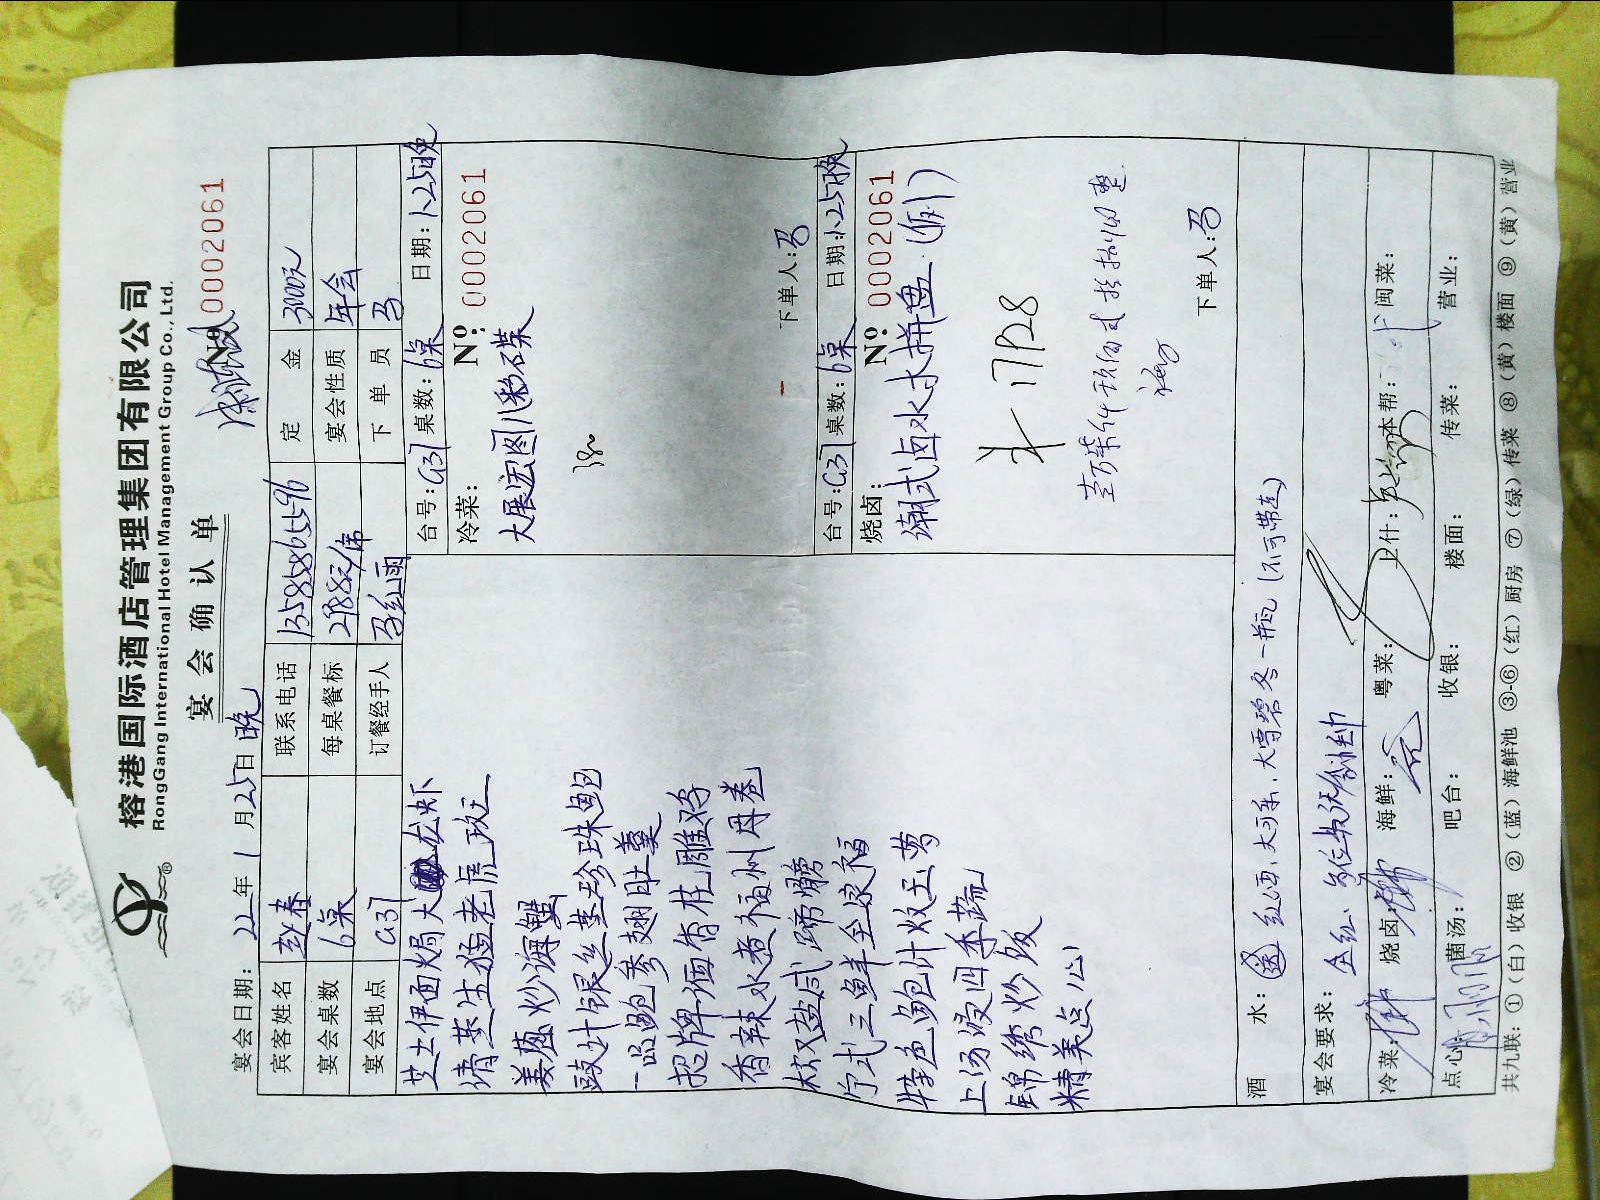 榕港国际酒店管理集团有限公司
RongGang International Hotel Management Group Co., Ltd.
宴会确认单
宴会日期：22年1月25日晚
Nº 0002061
宾客姓名 赵春 联系电话 13585865596 定金 3000元
宴会桌数 6桌 每桌餐标 2988元/席 宴会性质 年会
宴会地点 G31 订餐经手人 马红雨 下单员 马
芝士伊面焗大龙虾
清蒸生猛老虎斑
姜葱炒海蟹
豉汁银丝蒸珍珠鲍
一品鲍参翅肚羹
招牌酒香桂雕鸡
香辣水煮福州丹卷
椒盐 蹄髈
宁式三鲜全家福
特色鲍汁烩玉茑
上汤浸四季蔬
锦绣炒饭
精美点心
台号：G31 桌数：6桌 日期：1.25晚
冷菜： Nº: 0002061
大展宏图八彩碟
下单人：马
台号：G31 桌数：6桌 日期：1.25晚
烧卤： Nº 0002061
潮式卤水大拼盘（例）
下单人：马
酒水：送 红酒、大可乐、大雪碧各一瓶（不可带走）
宴会要求：全红
冷菜： 烧卤： 海鲜： 粤菜： 上什： 本帮： 闽菜：
点心： 菌汤： 吧台： 收银： 楼面： 传菜： 营业：
共九联：①（白）收银 ②（蓝）海鲜池 ③-⑥（红）厨房 ⑦（绿）传菜 ⑧（黄）楼面 ⑨（黄）营业